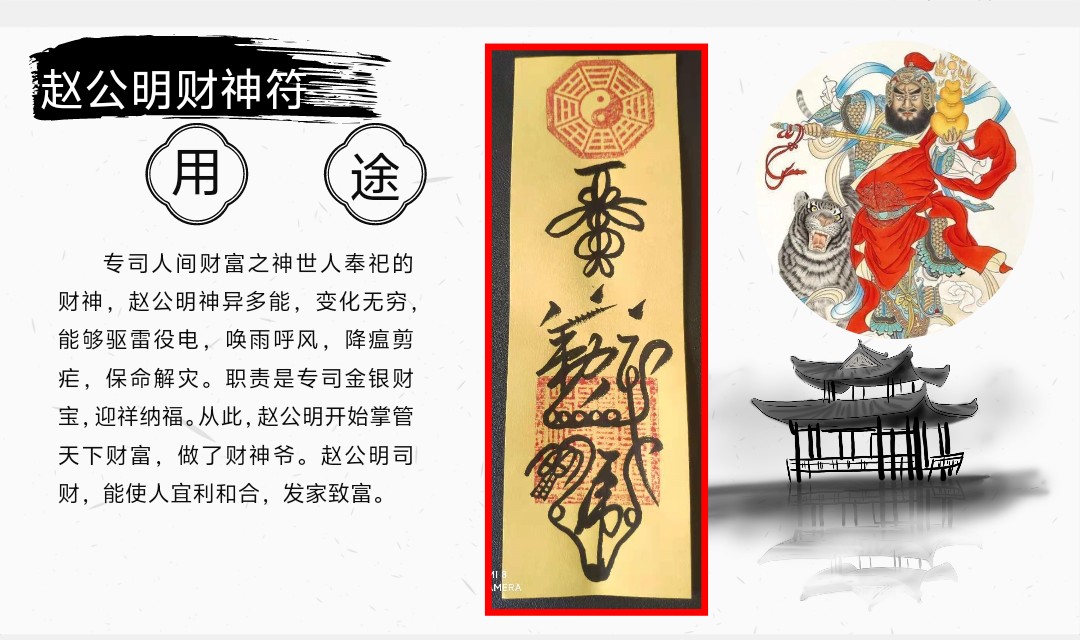 赵公明财神符
用途
专司人间财富之神世人奉祀的
财神，赵公明神异多能，变化无穷，
能够驱雷役电，唤雨呼风，降瘟剪
疟，保命解灾。职责是专司金银财
宝，迎祥纳福。从此，赵公明开始掌管
天下财富，做了财神爷。赵公明司
财，能使人宜利和合，发家致富。